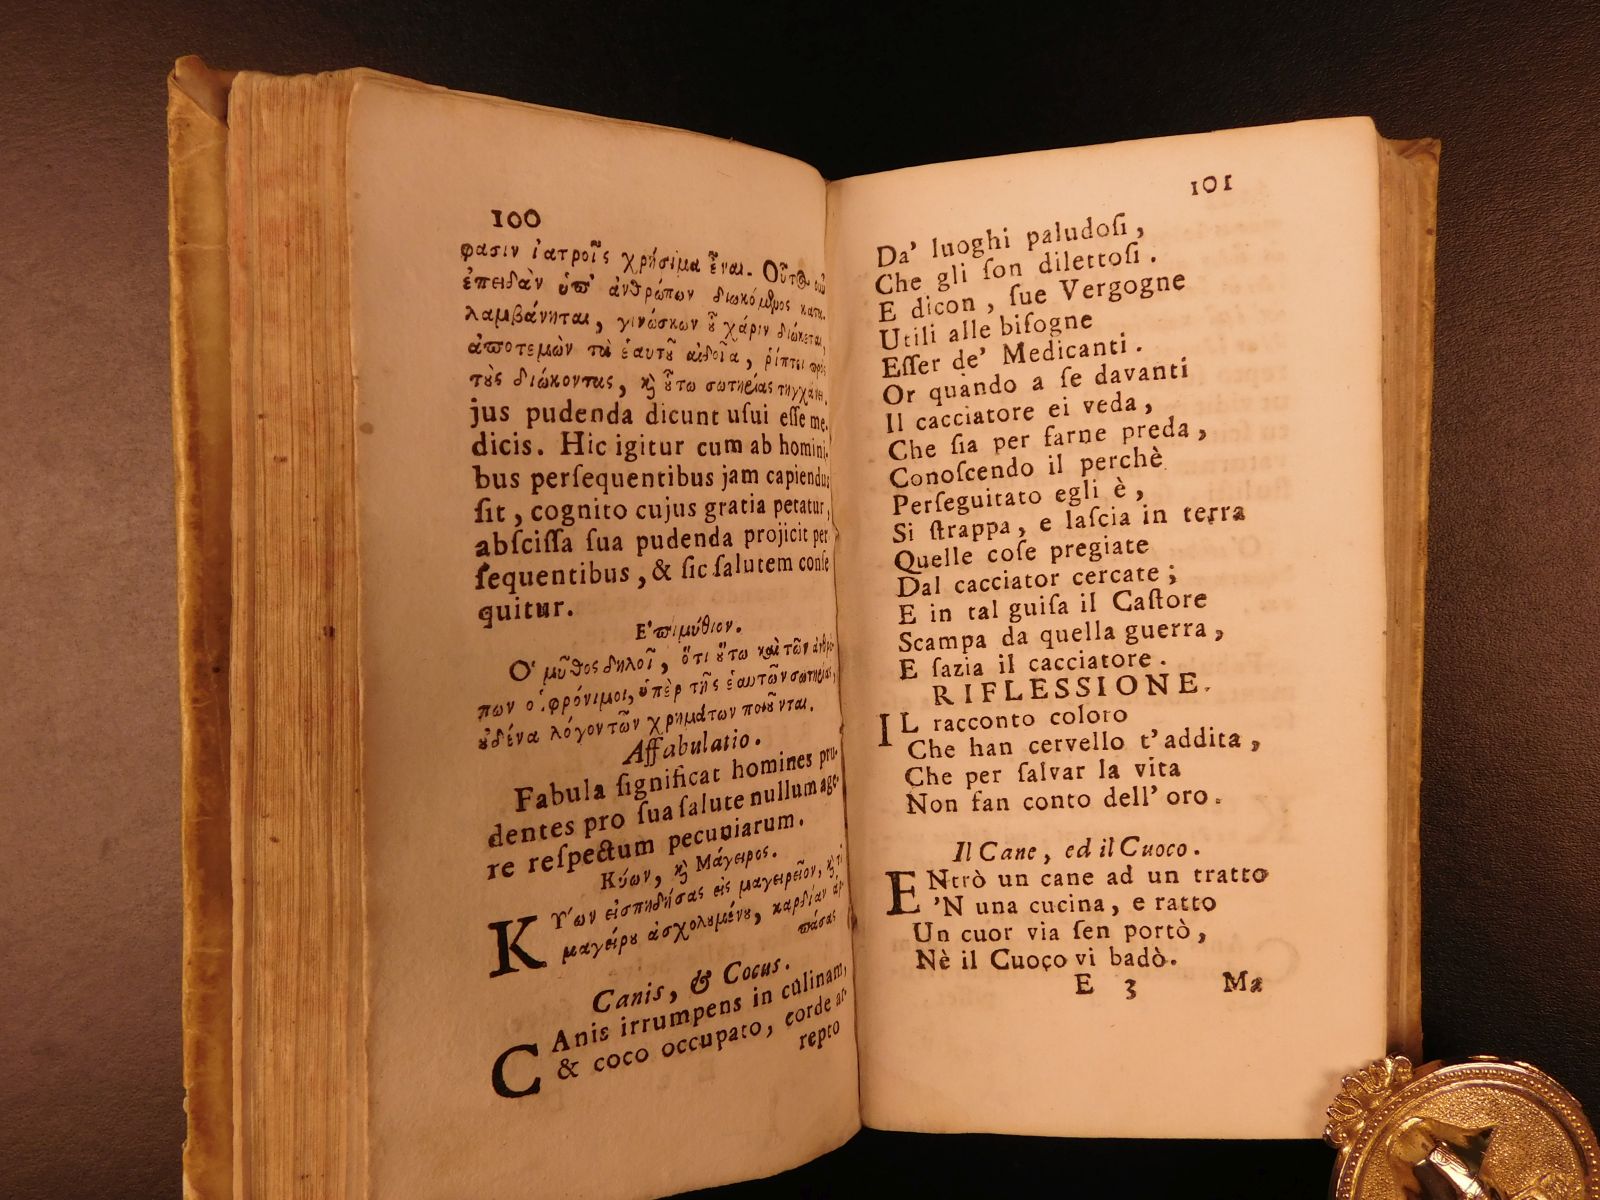 100
φασιν ἰατροῖς χρήσιμα εἶναι. Οὗτος οὖν
ἐπειδὰν ὑπ' ἀνθρώπων διωκόμενος κατα-
λαμβάνηται, γινώσκων οὗ χάριν διώκεται,
ἀποτεμὼν τὰ ἑαυτοῦ αἰδοῖα, ῥίπτει πρὸς
τοὺς διώκοντας, καὶ οὕτω σωτηρίας τυγχάνει.
jus pudenda dicunt uſui eſſe me-
dicis. Hic igitur cum ab homini-
bus perſequentibus jam capiendus
ſit, cognito cujus gratia petatur,
abſciſſa ſua pudenda projicit per
ſequentibus, & ſic ſalutem conſe
quitur.
Ε'πιμύθιον.
Ο' μῦθος δηλοῖ, ὅτι οὕτω καὶ τῶν ἀνθρώ-
πων οἱ φρόνιμοι, ὑπὲρ τῆς ἑαυτῶν σωτηρίας,
οὐδένα λόγον τῶν χρημάτων ποιοῦνται.
Affabulatio.
Fabula ſignificat homines pru-
dentes pro ſua ſalute nullum age-
re reſpectum pecuniarum.
Κύων, καὶ Μάγειρος.
ΚΥ'ων εἰσπηδήσας εἰς μαγειρεῖον, καὶ τοῦ
μαγείρου ἀσχολουμένου, καρδίαν ἁρ-
πάσας
Canis, & Cocus.
CAnis irrumpens in culinam,
& coco occupato, corde ar-
repto
101
Da' luoghi paludoſi,
Che gli ſon dilettoſi.
E dicon, ſue Vergogne
Utili alle biſogne
Eſſer de' Medicanti.
Or quando a ſe davanti
Il cacciatore ei veda,
Che ſia per farne preda,
Conoſcendo il perchè
Perſeguitato egli è,
Si ſtrappa, e laſcia in terra
Quelle coſe pregiate
Dal cacciator cercate;
E in tal guiſa il Caſtore
Scampa da quella guerra,
E ſazia il cacciatore.
RIFLESSIONE.
IL racconto coloro
Che han cervello t'addita,
Che per ſalvar la vita
Non fan conto dell' oro.
Il Cane, ed il Cuoco.
ENtrò un cane ad un tratto
'N una cucina, e ratto
Un cuor via ſen portò,
Nè il Cuoco vi badò.
E 3 Ma